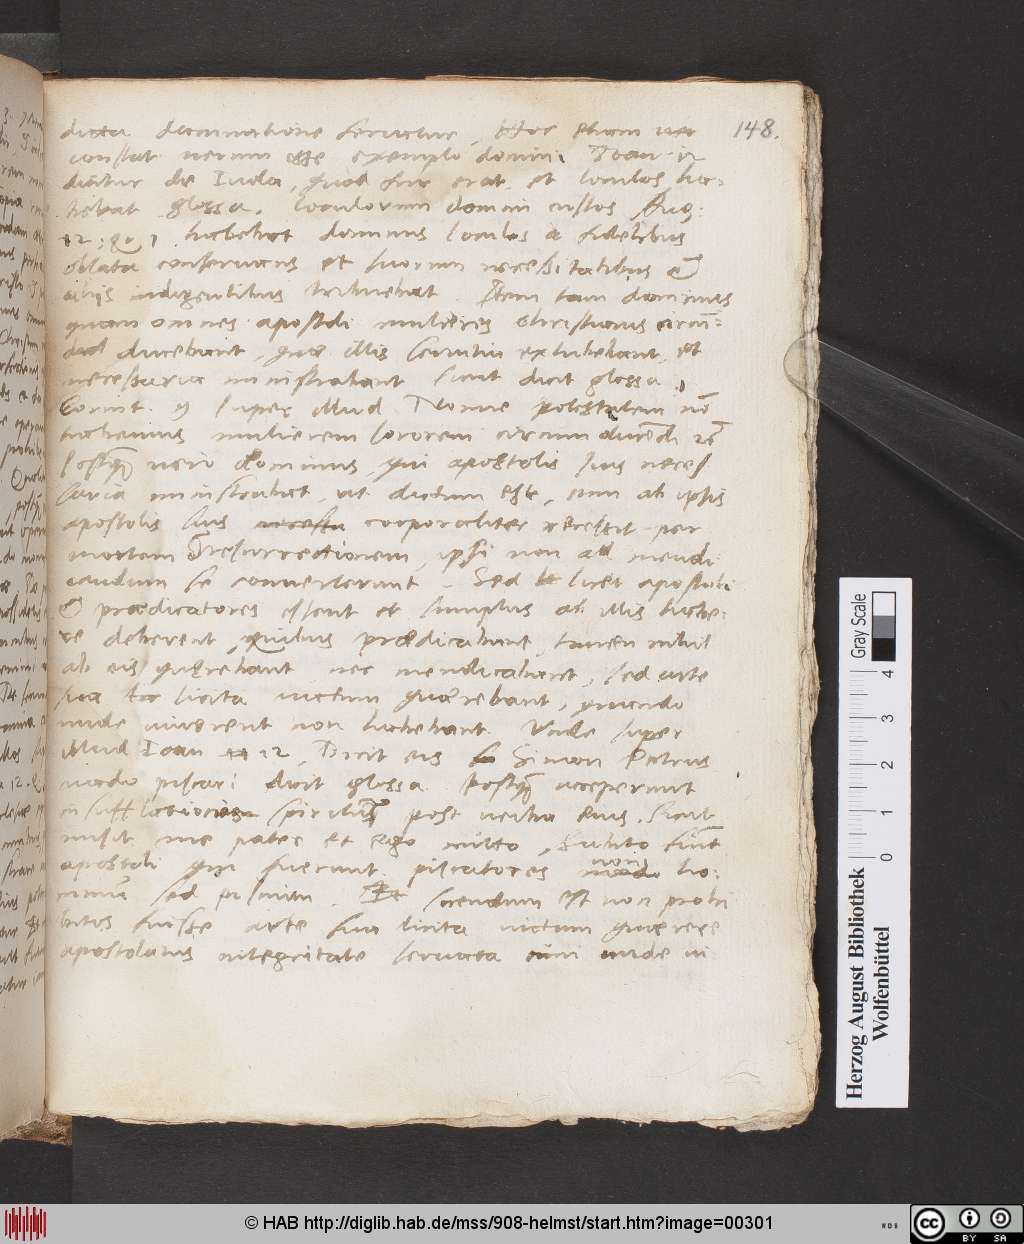 148.
dicta damnatione seruetur, Hoc etiam uer
constat uerum esse exemplo domini Ioan 12
dicitur de Iuda, quod fur erat, et loculos ha:
hebat glossa. loculorum domini custos Aug:
12: q 1 habebat dominus loculos a fidelibus
oblata conseruans et suorum necessitatibus &
alijs indigentibus tribuebat. Item tam dominus
quam omnes apostoli mulieres christianas circū:
ducebant, quæ illis seruitia exhibebant, et
necessaria ministrabant sicut dicit glossa 1
Corint. 9 super illud Nonne potestatem nō
habemus mulierem sororem circumducēdi
Postq̃ uero dominus, qui apostolis suis neces
saria ministrabat, ut dictum est, cum ab ipsis
apostolis suis corporaliter recessit per
mortem & resurrectionem, ipsi non ad mendi:
candum se conuerterunt. Sed licet apostoli
& prædicatores essent et sumptus ab illis habe:
re deberent quibus prædicabant, tamen nihil
ab eis quærebant nec mendicabant, sed arte
sua licita uictum quærebant, quando
unde uiuerent non habebant. Unde super
illud Ioan 12, Dicit eis Simon Petrus
uado piscari dicit glossa. Postq̃ acceperunt
insufflationem spiritus post uerba eius. Sicut
misit me pater et ego mitto, Subito fiūt
apostoli qui fuerunt piscatores non ho:
minū sed piscium. Et sciendum est non prohi
bitos fuisse arte sua licita uictum quærere
apostolatus integritate seruata cum unde ui:
Gray Scale
0 1 2 3 4
Herzog August Bibliothek
Wolfenbüttel
© HAB http://diglib.hab.de/mss/908-helmst/start.htm?image=00301
WDB
cc BY SA